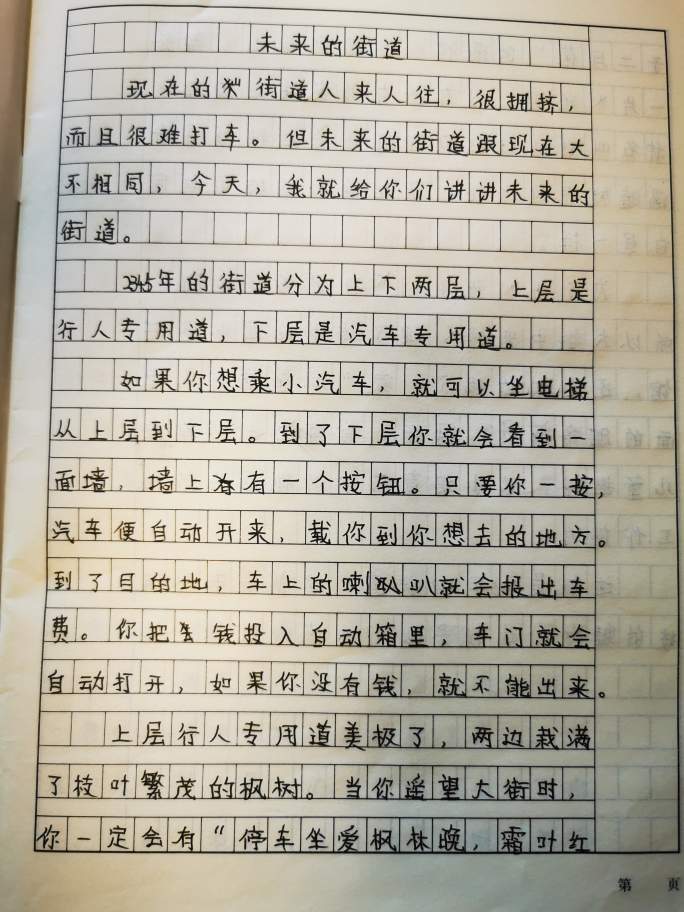 未来的街道
现在的街道人来人往，很拥挤，
而且很难打车。但未来的街道跟现在大
不相同，今天，我就给你们讲讲未来的
街道。
2345年的街道分为上下两层，上层是
行人专用道，下层是汽车专用道。
如果你想乘小汽车，就可以坐电梯
从上层到下层。到了下层你就会看到一
面墙，墙上有一个按钮。只要你一按，
汽车便自动开来，载你到你想去的地方。
到了目的地，车上的喇叭就会报出车
费。你把钱投入自动箱里，车门就会
自动打开，如果你没有钱，就不能出来。
上层行人专用道美极了，两边栽满
了枝叶繁茂的枫树。当你遥望大街时，
你一定会有“停车坐爱枫林晚，霜叶红
第 页